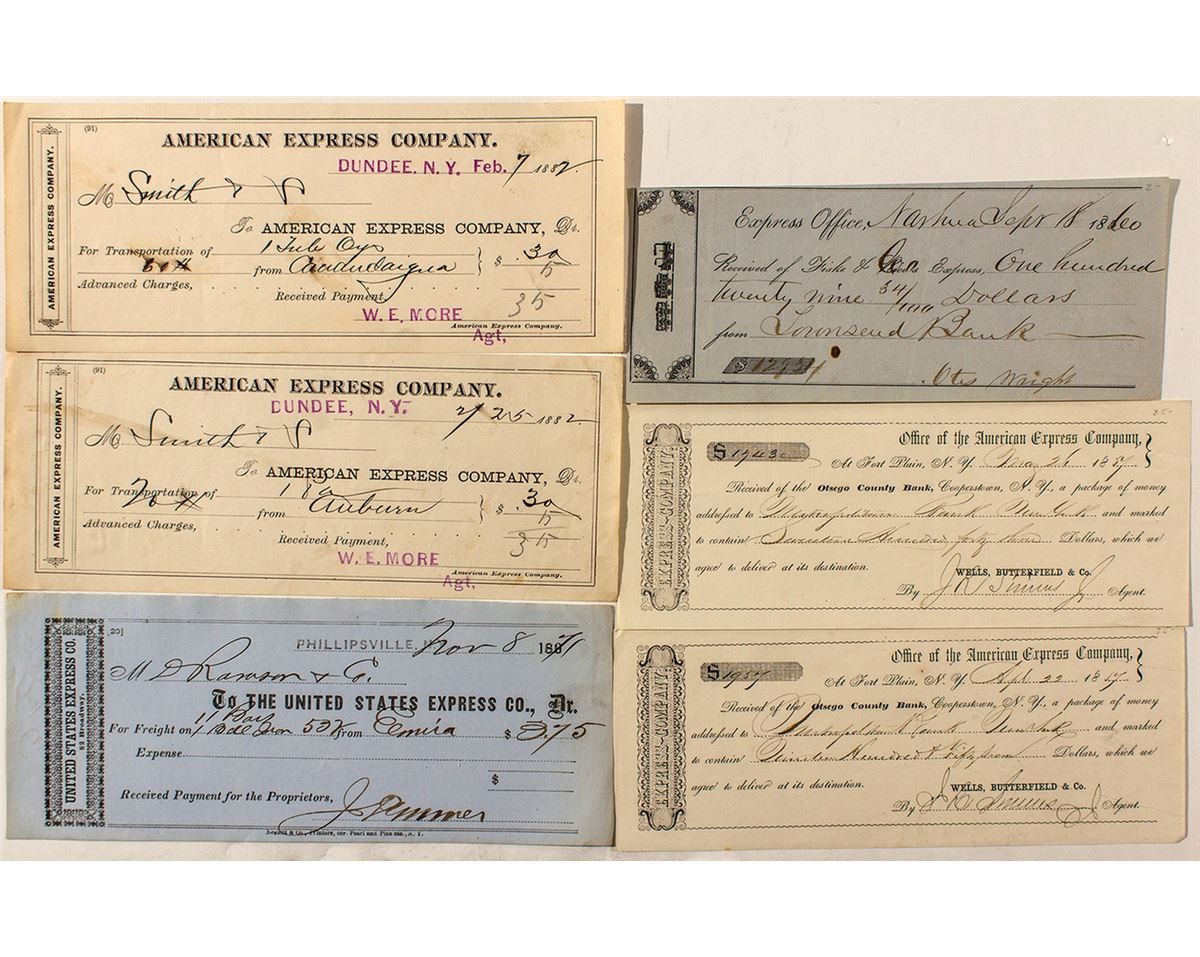 AMERICAN EXPRESS COMPANY.
(91)
AMERICAN EXPRESS COMPANY.
DUNDEE, N.Y. Feb. 7 1882.
M Smith &
To AMERICAN EXPRESS COMPANY, Dr.
For Transportation of 1 Tub Oys
from Canandaigua } $ .30
Advanced Charges, 5
Received Payment, 35
W. E. MORE
American Express Company.
Agt,
AMERICAN EXPRESS COMPANY.
(91)
AMERICAN EXPRESS COMPANY.
DUNDEE, N.Y. 2/25 1882.
M Smith &
To AMERICAN EXPRESS COMPANY, Dr.
For Transportation of 1
from Auburn } $ .30
Advanced Charges, 5
Received Payment, 35
W. E. MORE
American Express Company.
Agt,
UNITED STATES EXPRESS CO.
82 Broadway.
[20]
PHILLIPSVILLE, Nov 8 1871
M D Rawson & C.
To THE UNITED STATES EXPRESS CO., Dr.
For Freight on 1 Bdl Iron from Elmira $ 3.75
Expense
$
Received Payment for the Proprietors,
Nesbitt & Co., Printers, cor. Pearl and Pine sts., N. Y.
2-
Express Office, Nashua Sept 18 1860
Received of Fiske & Co Express, One hundred
twenty nine 34/100 Dollars
from Townsend Bank
$ 129 34
Otis Wright
25-
EXPRESS-COMPANY.
$ 1743
Office of the American Express Company, }
At Fort Plain, N. Y. Mar 26 1857
Received of the Otsego County Bank, Cooperstown, N. Y., a package of money
addressed to Metropolitan Bank New York and marked
to contain Seventeen Hundred forty three Dollars, which we
agree to deliver at its destination.
WELLS, BUTTERFIELD & Co.
By Agent.
EXPRESS-COMPANY.
$ 1957
Office of the American Express Company, }
At Fort Plain, N. Y. Apl 22 1857
Received of the Otsego County Bank, Cooperstown, N. Y., a package of money
addressed to Metropolitan Bank New York and marked
to contain Nineteen Hundred & Fifty seven Dollars, which we
agree to deliver at its destination.
WELLS, BUTTERFIELD & Co.
By Agent.